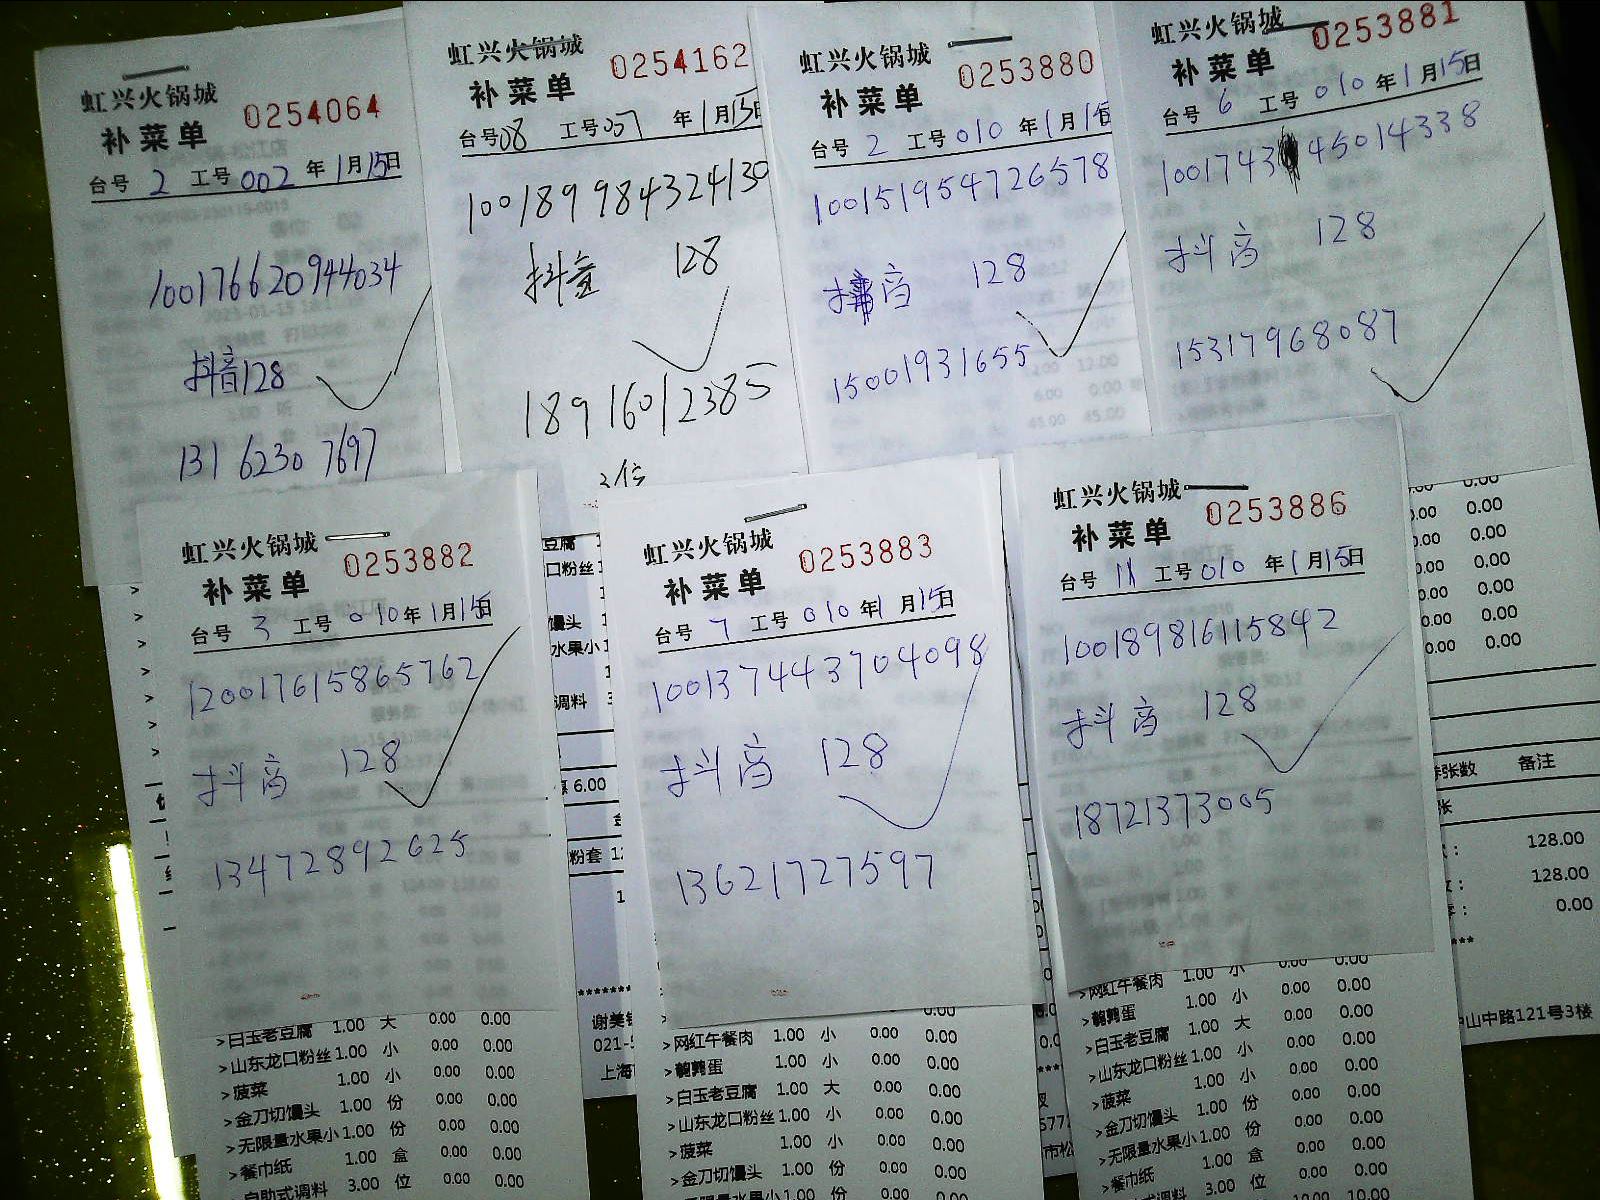 虹兴火锅城
补菜单 0254064
台号 2 工号 002 年 1月15日
100176620944034
抖音128
131 6230 7697
虹兴火锅城
补菜单 0254162
台号08 工号007 年1月15日
100189984324130
抖音 128
18916012385
虹兴火锅城
补菜单 0253880
台号 2 工号 010 年1月15日
100151954726578
抖音 128
15001931655
12.00
6.00 0.00
45.00 45.00
虹兴火锅城
补菜单 0253881
台号 6 工号 010 年1月15日
1001743 45014338
抖音 128
15317968087
虹兴火锅城
补菜单 0253882
台号 3 工号 010年1月15日
120017615865762
抖音 128
13472892625
>白玉老豆腐 1.00 大 0.00 0.00
>山东龙口粉丝1.00 小 0.00 0.00
>菠菜 1.00 小 0.00 0.00
>金刀切馒头 1.00 份 0.00 0.00
>无限量水果小1.00 份 0.00 0.00
>餐巾纸 1.00 盒 0.00 0.00
自助式调料 3.00 位 0.00 0.00
豆腐
口粉丝1
馒头
水果小1
调料 3
6.00
粉套 12
谢美
021-5
上海
虹兴火锅城
补菜单 0253883
台号 7 工号 010 年1月15日
1001374443704098
抖音 128
13621727597
>网红午餐肉 1.00 小 0.00 0.00
>鹌鹑蛋 1.00 小 0.00 0.00
>白玉老豆腐 1.00 大 0.00 0.00
>山东龙口粉丝1.00 小 0.00 0.00
>菠菜 1.00 小 0.00 0.00
>金刀切馒头 1.00 份 0.00 0.00
无限量水果小1.00 份 0.00 0.00
虹兴火锅城
补菜单 0253886
台号 11 工号010 年1月15日
100189816115842
抖音 128
18721373005
>网红午餐肉 1.00 小 0.00 0.00
>鹌鹑蛋 1.00 小 0.00 0.00
>白玉老豆腐 1.00 大 0.00 0.00
>山东龙口粉丝1.00 小 0.00 0.00
>菠菜 1.00 小 0.00 0.00
>金刀切馒头 1.00 份 0.00 0.00
>无限量水果小1.00 份 0.00 0.00
>餐巾纸 1.00 盒 0.00 0.00
式调料 3.00 位 0.00 0.00
10.00 10.00
0.00 0.00
0.00 0.00
0.00 0.00
0.00 0.00
0.00 0.00
0.00 0.00
0.00 0.00
张数 备注
张
128.00
128.00
0.00
山中路121号3楼
市松